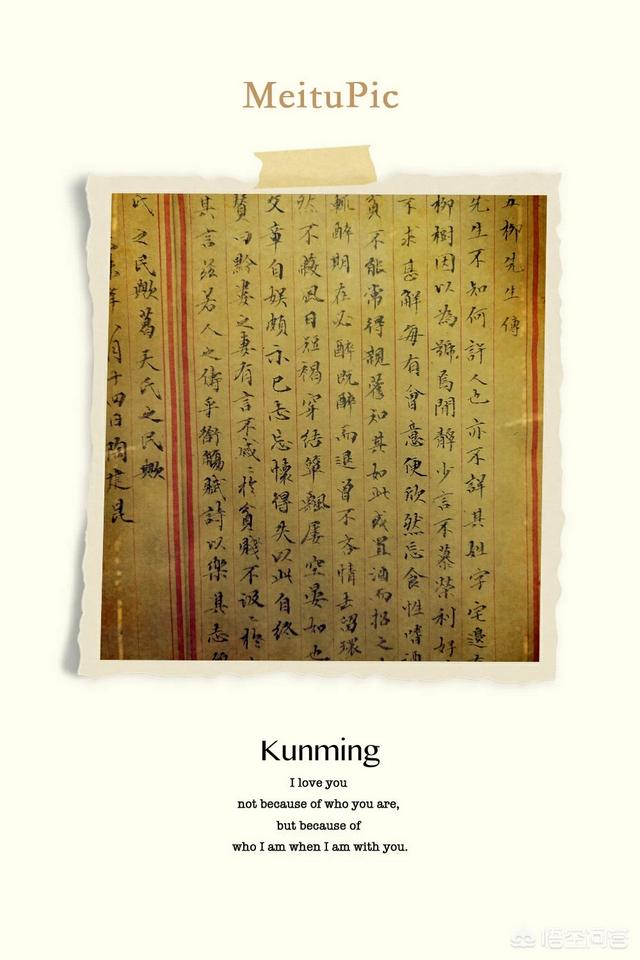 MeituPic
五柳先生傳
先生不知何許人也亦不詳其姓字宅邊有
柳樹因以為號焉閒靜少言不慕榮利好
不求甚解每有會意便欣然忘食性嗜酒
貧不能常得親舊知其如此或置酒而招之
輒醉期在必醉既醉而退曾不吝情去留環
然不蔽風日短褐穿結簞瓢屢空晏如也
文章自娛頗示己志忘懷得失以此自終
贊曰黔婁之妻有言不戚〻於貧賤不汲〻於
其言茲若人之儔乎銜觴賦詩以樂其志
氏之民歟葛天氏之民歟
年八月十四日陶建昆
Kunming
I love you
not because of who you are,
but because of
who I am when I am with you.
悟空问答